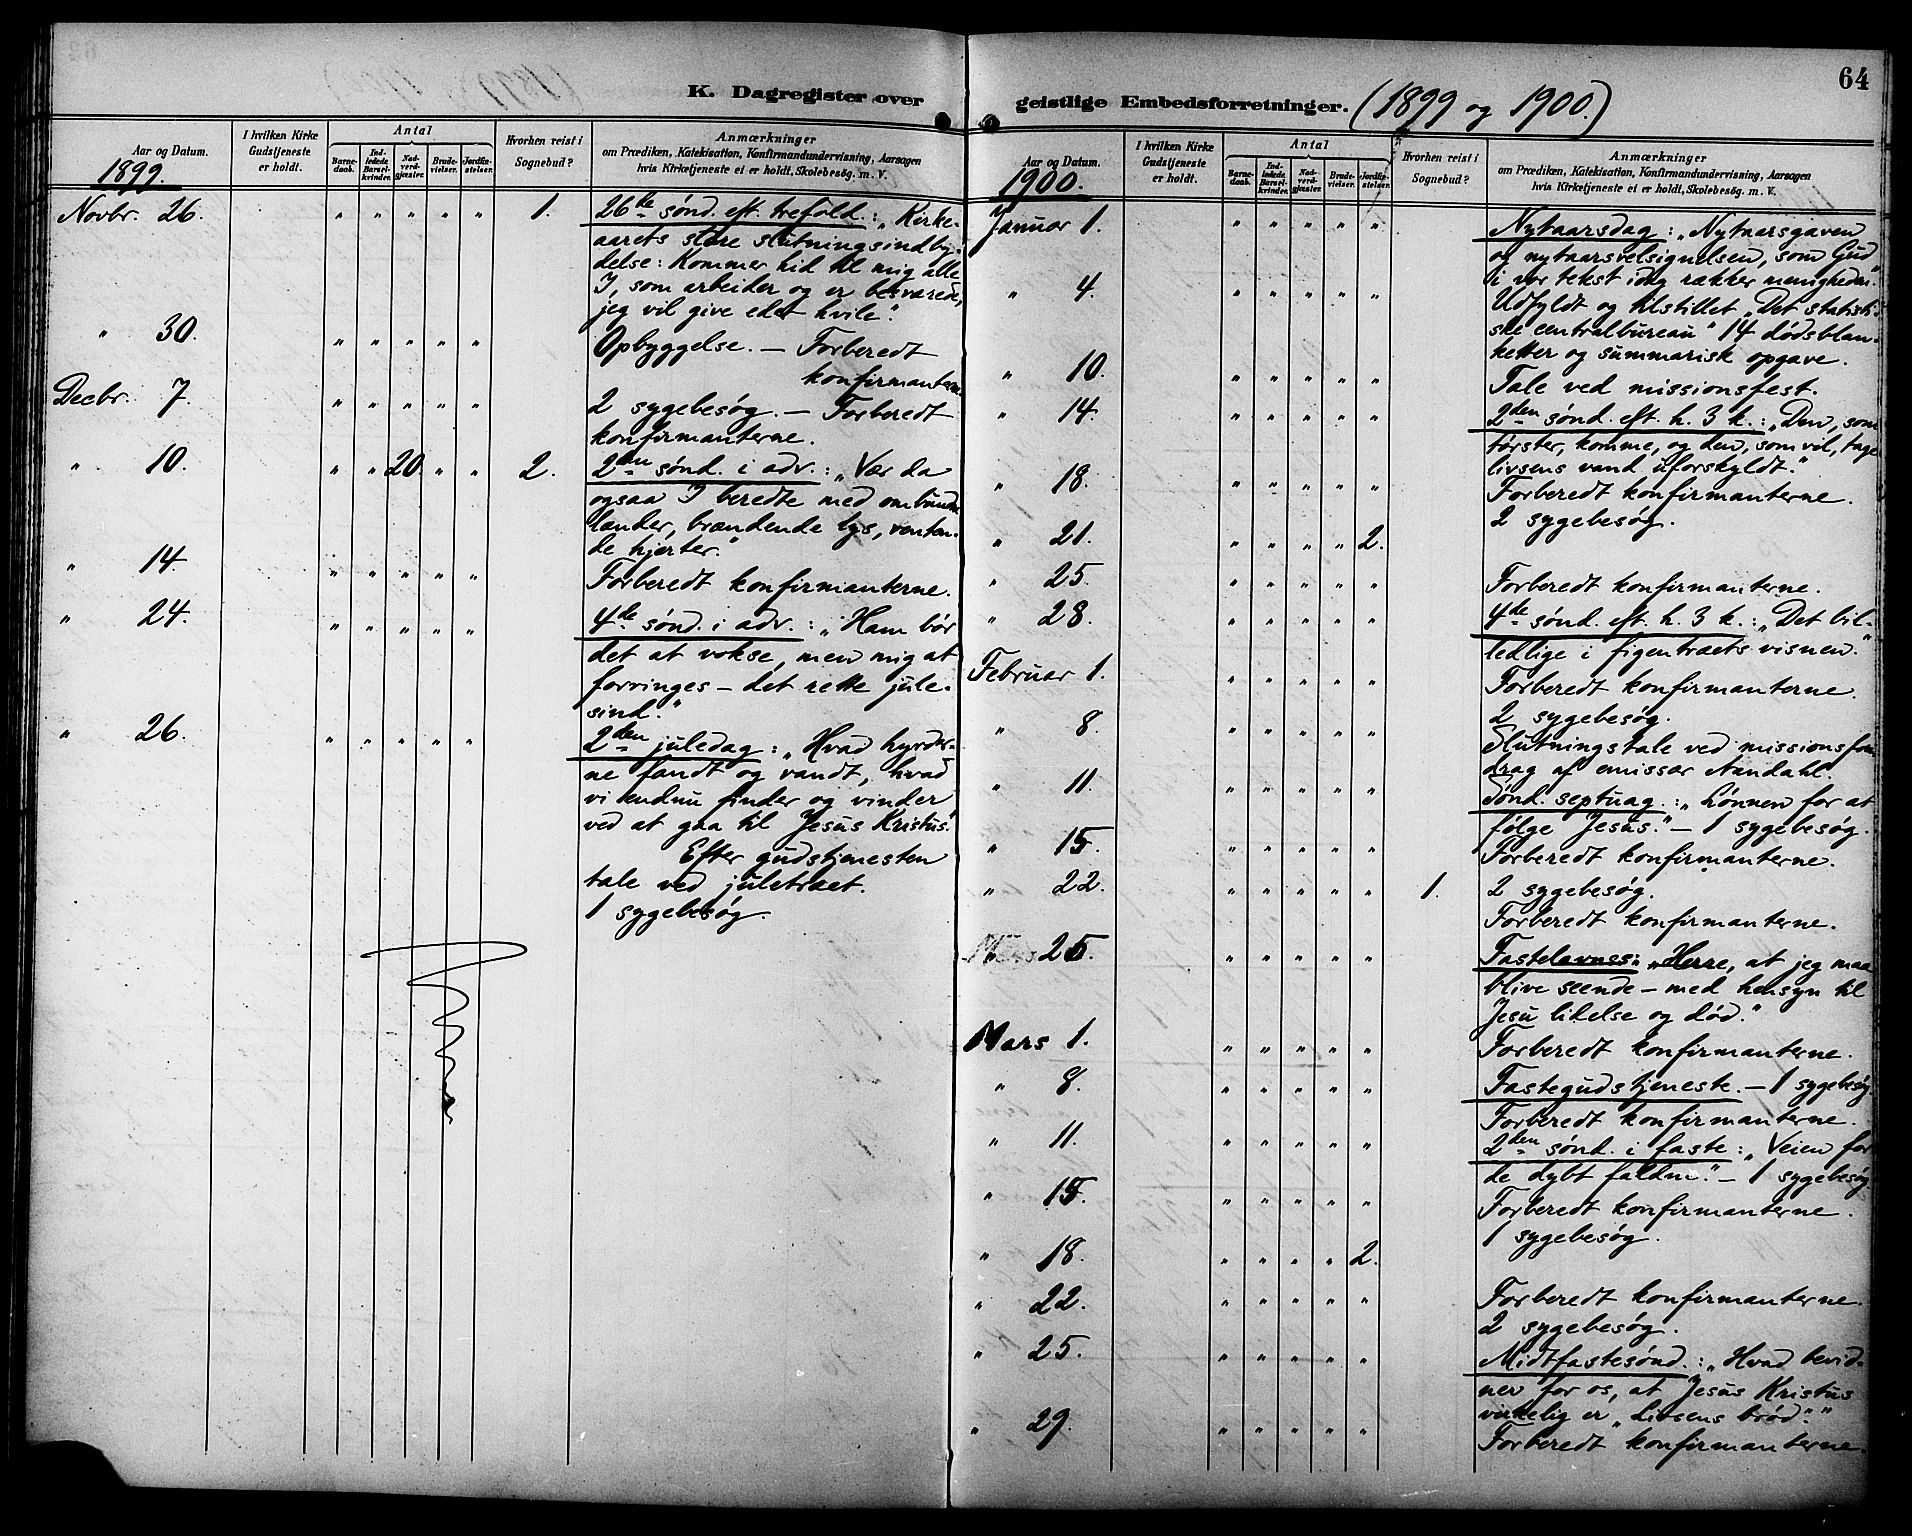 64
K. Dagregister over geistlige Embedsforretninger. (1899 og 1900.)
Aar og Datum.
1899.
I hvilken Kirke Gudstjeneste er holdt.
Antal
Barnedaab.
Indledede Barselkvinder.
Nadverdgjæster.
Brudevielser.
Jordfæstelser.
Hvorhen reist i Sognebud?
Anmærkninger
om Prædiken, Katekisation, Konfirmandundervisning, Aarsagen
hvis Kirketjeneste ei er holdt, Skolebesøg. m. V.
Novbr. 26. " " " " " 1. 26de sønd. eft. trefold.: „Kirke-
aarets store slutningsindby-
delse: Kommer hid til mig alle
I, som arbeider og er besværede,
jeg vil give eder hvile".
" 30. " " " " " Opbyggelse. — Forberedt
konfirmanterne.
Decbr. 7. " " " " " 2 sygebesøg. — Forberedt
konfirmanterne.
" 10. " " 20 " " 2. 2den sønd. i adv.: „Vær da
ogsaa I beredte med ombundne
lænder, brændende lys, venten-
de hjerter."
" 14. " " " " " Forberedt konfirmanterne.
" 24. " " " " " 4de sønd. i adv.: „Ham bør
det at vokse, men mig at
forringes — det rette jule-
sind."
" 26. " " " " " 2den juledag: „Hvad hyrder-
ne fandt og vandt, hvad
vi endnu finder og vinder
ved at gaa til Jesus Kristus."
Efter gudstjenesten
tale ved juletræet.
1 sygebesøg.
Aar og Datum.
1900.
I hvilken Kirke Gudstjeneste er holdt.
Antal
Barnedaab.
Indledede Barselkvinder.
Nadverdgjæster.
Brudevielser.
Jordfæstelser.
Hvorhen reist i Sognebud?
Anmærkninger
om Prædiken, Katekisation, Konfirmandundervisning, Aarsagen
hvis Kirketjeneste ei er holdt, Skolebesøg. m. V.
Januar 1. " " " " " Nytaarsdag: „Nytaarsgaven
og nytaarsvelsignelsen, som Gud
i vor tekst idag rækker menigheden."
" 4. " " " " " Udfyldt og tilstillet „Det statisti-
ske centralbureau" 14 dødsblan-
ketter og summarisk opgave.
" 10. " " " " " Tale ved missionsfest.
" 14. " " " " " 2den sønd. eft. h. 3 k.: „Den, som
tørster, komme, og den, som vil, tage
livsens vand uforskyldt."
" 18. " " " " " Forberedt konfirmanterne.
2 sygebesøg.
" 21. " " " " 2.
" 25. " " " " " Forberedt konfirmanterne.
" 28. " " " " " 4de sønd. eft. h. 3 k.: „Det bil-
ledlige i figentræets visnen."
Februar 1. " " " " " Forberedt konfirmanterne.
2 sygebesøg.
" 8. " " " " " Slutningstale ved missionsfor-
drag af emissær Aandahl.
" 11. " " " " " Sønd. septuag.: „Lønnen for at
følge Jesus." — 1 sygebesøg.
" 15. " " " " " Forberedt konfirmanterne.
" 22. " " " " " 1. 2 sygebesøg.
Forberedt konfirmanterne.
" 25. " " " " " Fastelavnss: „Herre, at jeg maa
blive seende — med hensyn til
Jesu lidelse og død."
Mars 1. " " " " " Forberedt konfirmanterne.
" 8. " " " " " Fastegudstjeneste. — 1 sygebesøg.
Forberedt konfirmanterne.
" 11. " " " " " 2den sønd. i faste: „Veien for
de dybt faldne." — 1 sygebesøg.
" 15. " " " " " Forberedt konfirmanterne.
1 sygebesøg.
" 18. " " " " 2.
" 22. " " " " " Forberedt konfirmanterne.
2 sygebesøg.
" 25. " " " " " Midtfastesønd.: „Hvad bevid-
ner for os, at Jesus Kristus
virkelig er „Livsens brød"."
" 29. " " " " " Forberedt konfirmanterne.